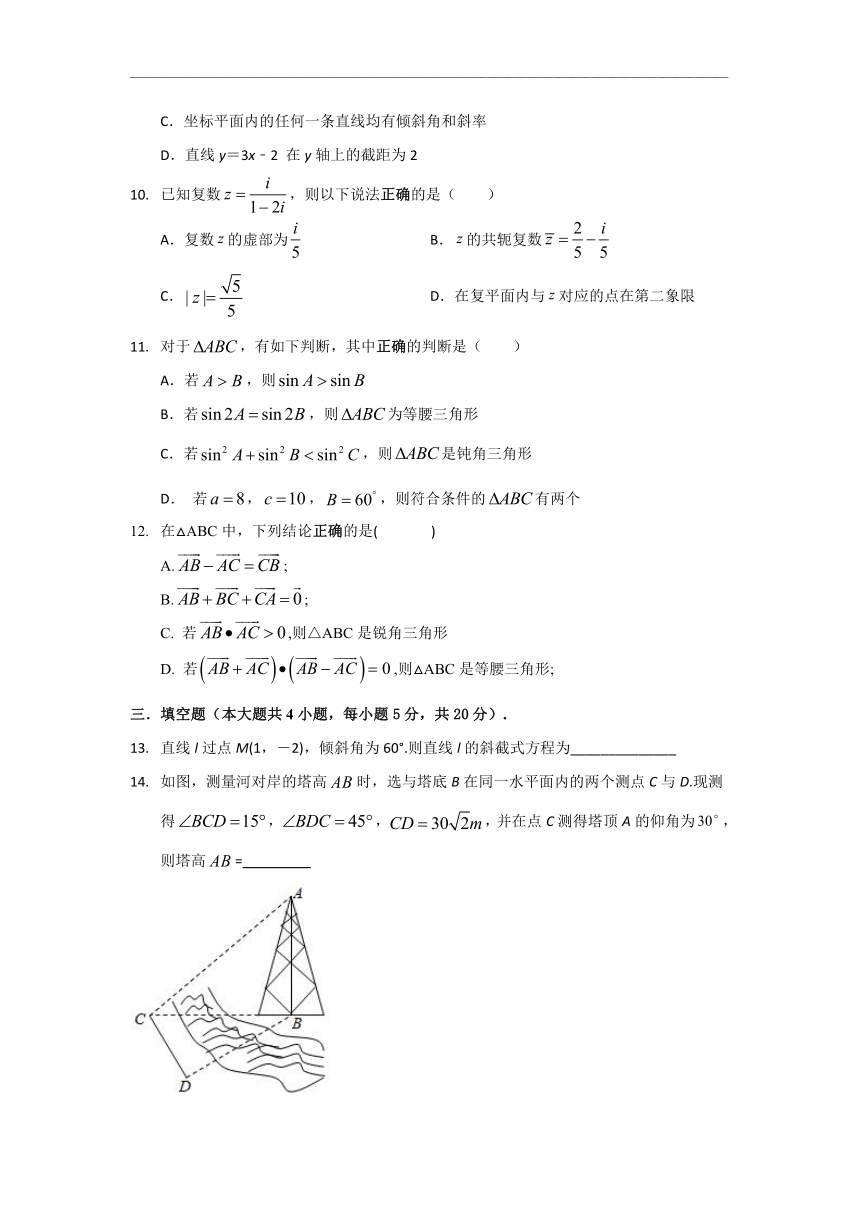 C. 坐标平面内的任何一条直线均有倾斜角和斜率
D. 直线 y＝3x﹣2 在 y 轴上的截距为 2
10. 已知复数 z = i/(1−2i)，则以下说法正确的是（　　）
A. 复数 z 的虚部为 i/5　B. z 的共轭复数 z̅ = 2/5 − i/5
C. |z|= √5/5　D. 在复平面内与 z 对应的点在第二象限
11. 对于 ΔABC，有如下判断，其中正确的判断是（　　）
A. 若 A > B，则 sin A > sin B
B. 若 sin 2A = sin 2B，则 ΔABC 为等腰三角形
C. 若 sin² A + sin² B < sin² C，则 ΔABC 是钝角三角形
D. 若 a = 8，c = 10，B = 60°，则符合条件的 ΔABC 有两个
12. 在△ABC 中，下列结论正确的是(　　)
A. AB⃗ − AC⃗ = CB⃗ ;
B. AB⃗ + BC⃗ + CA⃗ = 0⃗ ;
C. 若 AB⃗ • AC⃗ > 0 ,则△ABC 是锐角三角形
D. 若 (AB⃗ + AC⃗) • (AB⃗ − AC⃗) = 0 ,则△ABC 是等腰三角形;
三．填空题（本大题共 4 小题，每小题 5 分，共 20 分）.
13. 直线 l 过点 M(1，－2)，倾斜角为 60°.则直线 l 的斜截式方程为______________
14. 如图，测量河对岸的塔高 AB 时，选与塔底 B 在同一水平面内的两个测点 C 与 D.现测
得 ∠BCD = 15°，∠BDC = 45°，CD = 30√2m，并在点 C 测得塔顶 A 的仰角为 30°，
则塔高 AB =_________
A
C
B
D